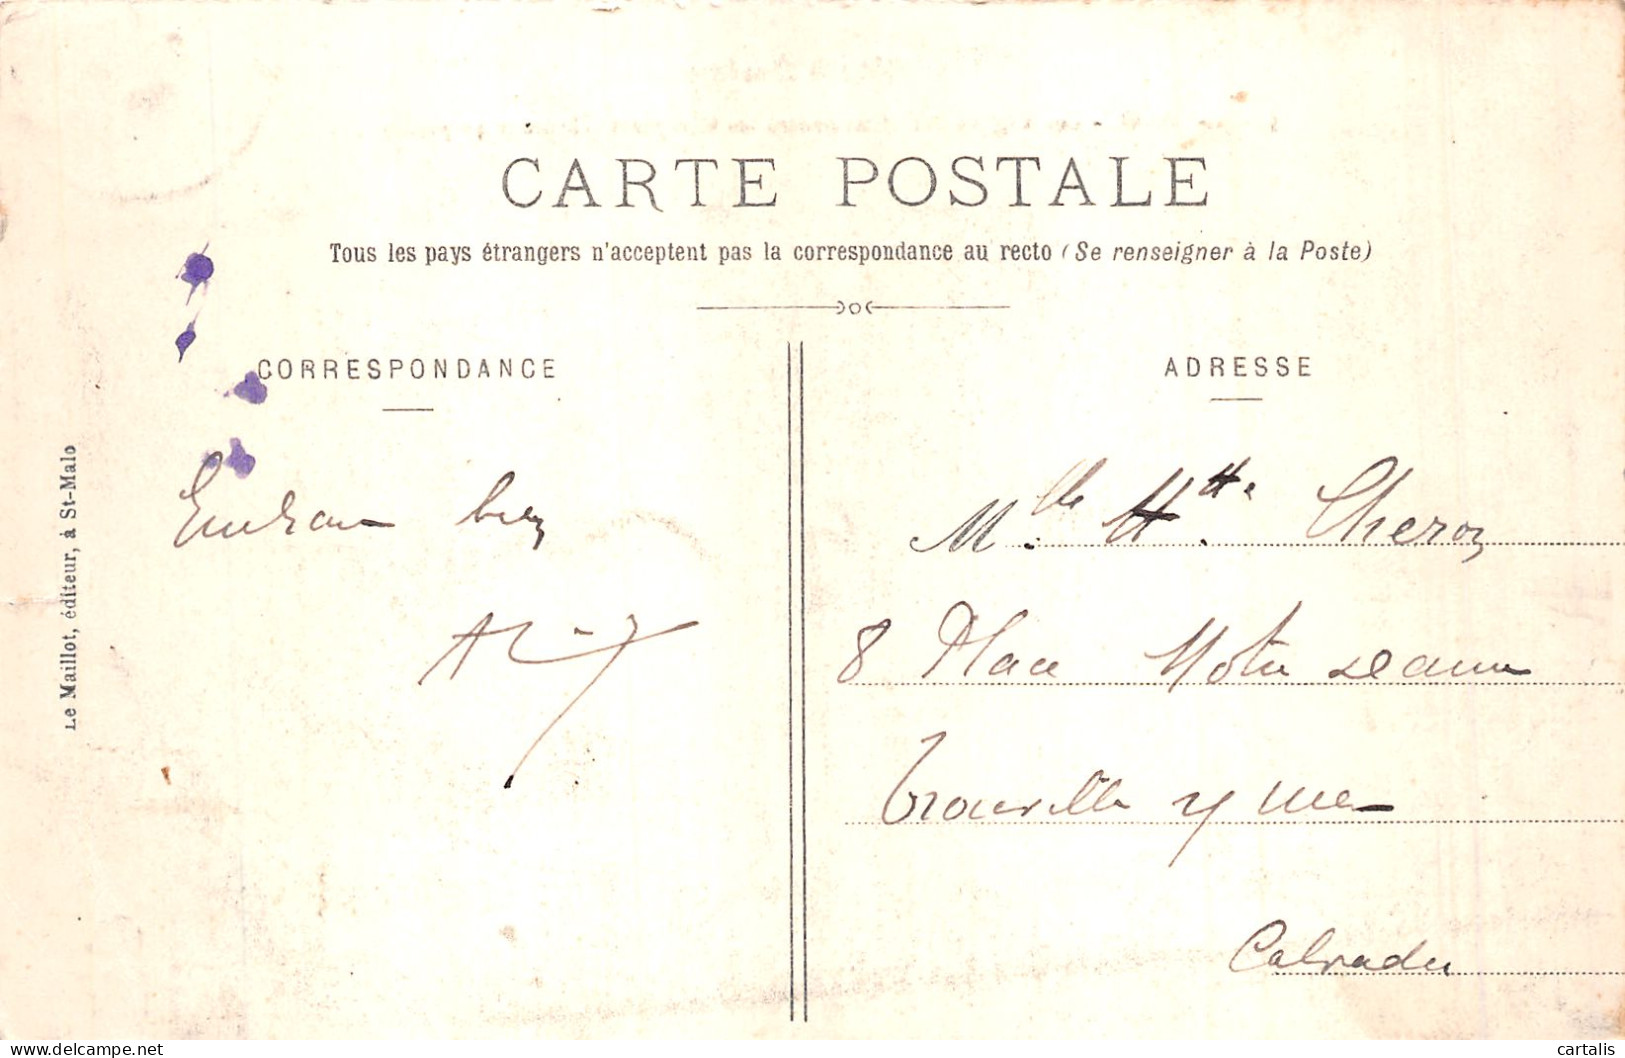 CARTE POSTALE
Tous les pays étrangers n'acceptent pas la correspondance au recto (Se renseigner à la Poste)
CORRESPONDANCE
ADRESSE
Le Maillot, éditeur, à St-Malo
Mlle Hte Cheron
8 Place Notre Dame
Trouville s/ mer
Calvados
www.delcampe.net
cartalis